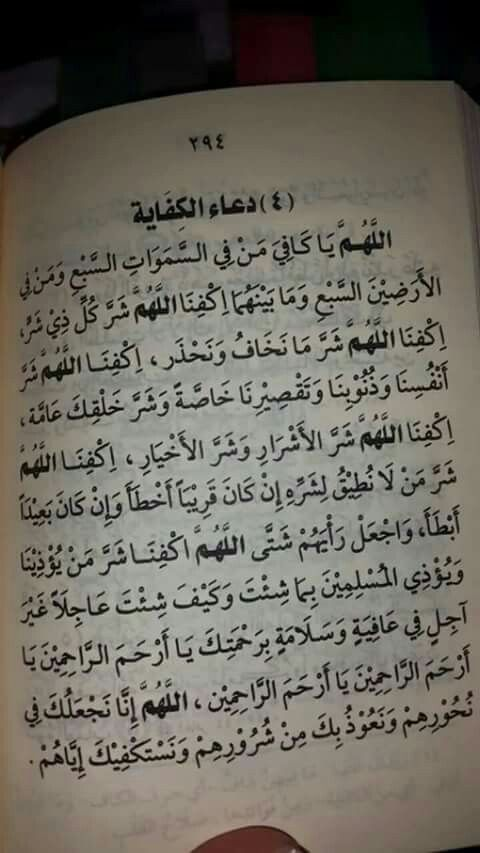 ٣٩٤
(٤) دعاء الكِفَاية
اللَّهُمَّ يَا كَافِيَ مَنْ فِي السَّمَوَاتِ السَّبْعِ وَمَنْ فِي
الأَرَضِيْنَ السَّبْعِ وَمَا بَيْنَهُمَا اِكْفِنَا اللَّهُمَّ شَرَّ كُلِّ ذِيْ شَرٍّ،
اِكْفِنَا اللَّهُمَّ شَرَّ مَا نَخَافُ وَنَحْذَر، اِكْفِنَا اللَّهُمَّ شَرَّ
أَنْفُسِنَا وَذُنُوْبِنَا وَتَقْصِيْرِنَا خَاصَّةً وَشَرَّ خَلْقِكَ عَامَّة،
اِكْفِنَا اللَّهُمَّ شَرَّ الأَشْرَارِ وَشَرَّ الأَخْيَارِ، اِكْفِنَا اللَّهُمَّ
شَرَّ مَنْ لَا نُطِيْقُ لِشَرِّهِ إِنْ كَانَ قَرِيْبَاً أَخْطَأَ وَإِنْ كَانَ بَعِيْدَاً
أَبْطَأَ، وَاجْعَلْ رَأْيَهُمْ شَتَّى اللَّهُمَّ اكْفِنَا شَرَّ مَنْ يُؤْذِيْنَا
وَيُؤْذِي المُسْلِمِيْنَ بِمَا شِئْتَ وَكَيْفَ شِئْتَ عَاجِلَاً غَيْرَ
آجِلٍ فِي عَافِيَةٍ وَسَلَامَةٍ بِرَحْمَتِكَ يَا أَرْحَمَ الرَّاحِمِيْنَ يَا
أَرْحَمَ الرَّاحِمِيْنَ يَا أَرْحَمَ الرَّاحِمِيْن، اللَّهُمَّ إِنَّا نَجْعَلُكَ فِي
نُحُوْرِهِمْ وَنَعُوْذُ بِكَ مِنْ شُرُوْرِهِمْ وَنَسْتَكْفِيْكَ إِيَّاهُمْ.